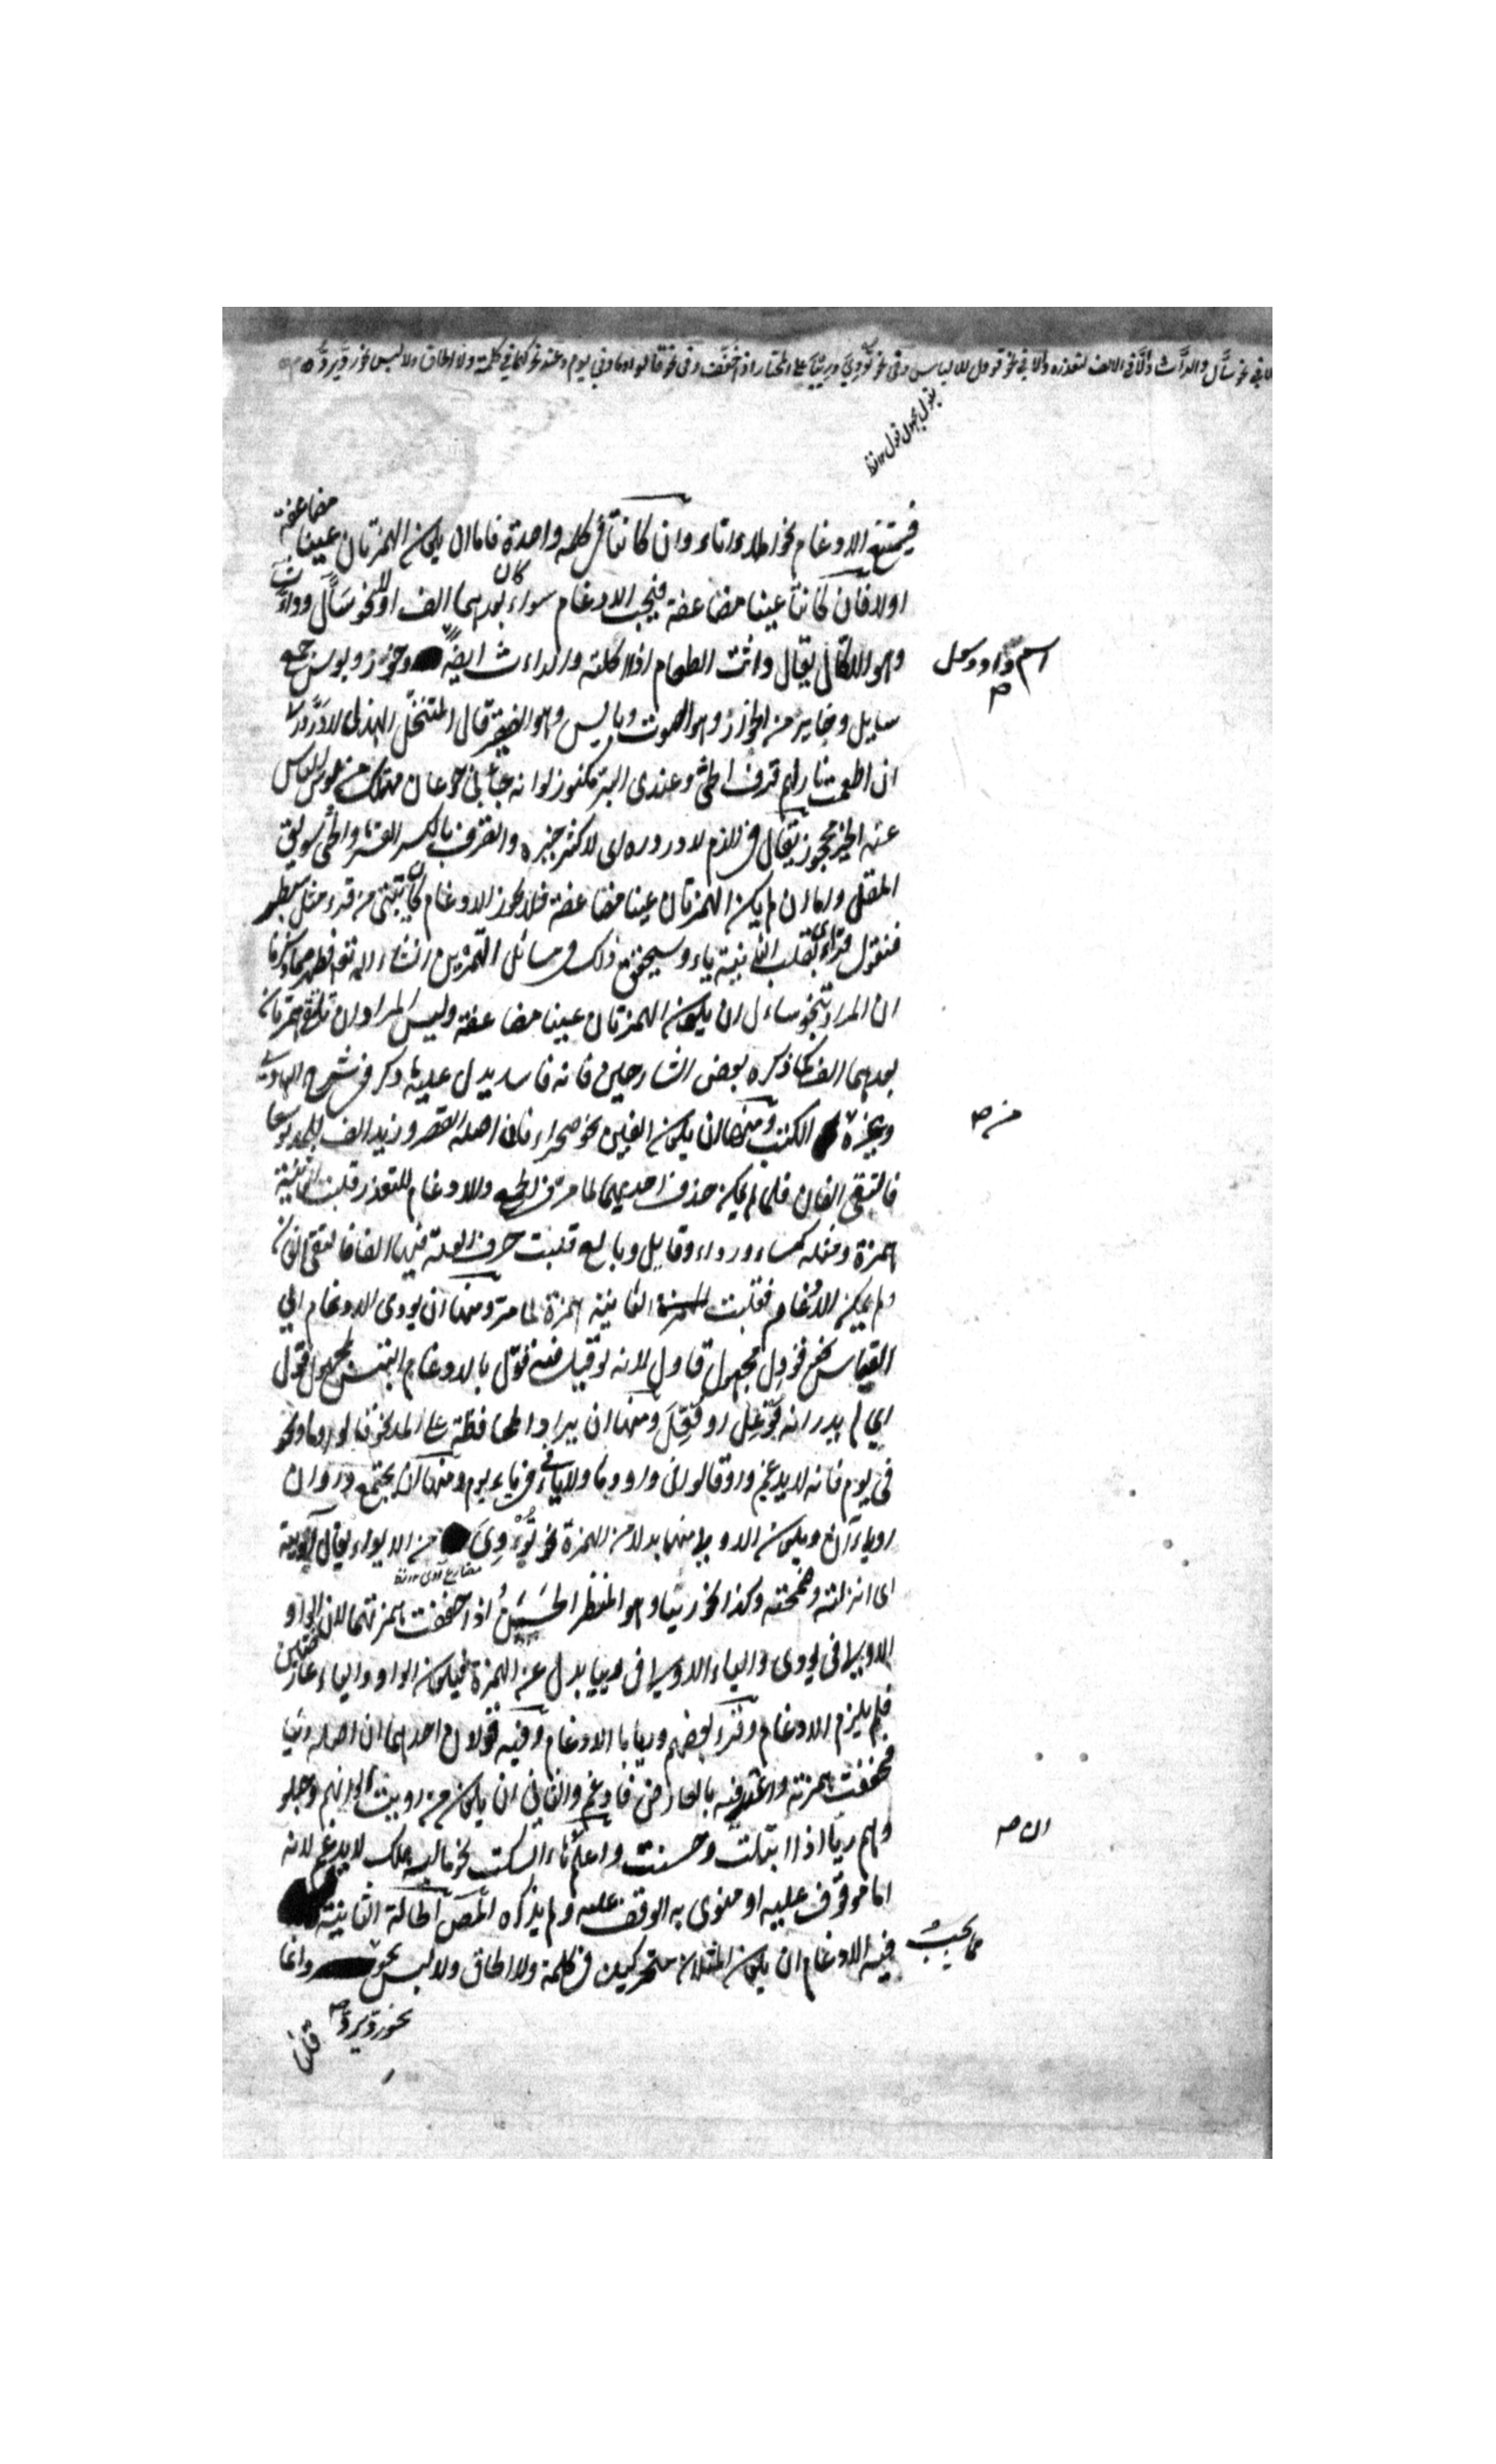 الا في نحو سأّل والدأّث وإلا في الالف لتعذره وإلا في نحو قوول للالباس وفي نحو تووي وريّيا على المختار اذا خفف وفي نحو قالوا وما وفي يوم وعند نحو كهما في كلمة ولا الحاق ولا لبس نحو رد يرد
فيمتنع الادغام نحو املاء اناء وان كانتا في كلمة واحدة فاما ان يكون الهمزتان عينا مضاعفة
اولا فان كانتا عينا مضاعفة فيجب الادغام سواء كان بعدهما الف اولا نحو سأّل ودأّث
وهو الاكّال يقال دأثت الطعام اذا اكلته والدأّاث ايضا وجؤّر وبؤّس جمع
اسم واد
سايل وجاير من الجؤار وهو الصوت وبايس وهو الفقير قال المتنخل الهذلي لا درّ درّي
ان اطعمت نازلهم قرف الحتيّ وعندي البرّ مكنوز لو انه جاءني جوعان مهتلك من بؤّس الناس
عنه الخير محجوز يقال في الذم لا درّ درّه اي لا كثر خيره والقرف بالكسر القشر والحتيّ سويق
المقل واما ان لم يكن الهمزتان عينا مضاعفة فلا يجوز الادغام كأن تبنى من قرء مثل سبطر
فتقول قرأي بقلب الثانية ياء وسيحقق ذلك في مسائل التمرين انشاء الله تع فظهر مما ذكرنا
ان المراد بنحو سائل ان يكون الهمزتان عينا مضاعفة وليس المراد ان تلتقي همزتان
بعدهما الف كما ذكره بعض الشارحين فانه فاسد يدل عليه ما ذكر في شرح الهادي
وغيره من الكتب ومنها ان يكون الفين نحو صحراء فان اصله القصر وزيد الف للمد توسعا
فالتقى الفان فلما لم يمكن حذف احديهما لما مر في الجمع ولا الادغام للتعذر قلبت الثانية
همزة ومثله كساء ورداء وقايل وبايع قلبت حرف العلة فيها الفا فالتقى الفان
ولم يمكن الادغام فقلبت الثانية همزة لما مر ومنها ان يؤدي الادغام الى
القياس نحو قوول مجهول قاول لانه لو قيل فيه قوّل بالادغام التبس بمجهول قوّل
اي لم يدر انه فوعل او فعّل ومنها ان يراد المحافظة على المد نحو قالوا وما ونحو
في يوم فانه لا يدغم واو قالوا في واو وما ولا ياء في في ياء يوم ومنها ان يجتمع واوان
او ياءان ويكون الاولى منهما بدلا من الهمزة نحو تؤوي من الايواء يقال آويته
اي انزلته وضممته وكذا نحو ريّيا وهو المنظر الحسن اذا خففت همزتهما لان الواو
الاولى في يووي والياء الاولى في رييا بدل عن الهمزة فيكون الواو والياء عارضين
فلم يلزم الادغام وقرء بعضهم وريّا بالادغام وفيه قولان احدهما ان اصله رئيا
فخففت همزته واعتد فيه بالعارض فادغم والثاني ان يكون من رويت الوانهم وجلو
دهم ريّا اذا امتلأت وحسنت واعلم ان هاء السكت نحو ماليه هلك لا يدغم لانه
اما موقوف عليه او منوي به الوقف عليه ولم يذكره المص الحالة الثانية
مما يجب فيه الادغام ان يكون المثلان متحركين في كلمة ولا الحاق ولا لبس نحو رد يرد وانما
قلنا